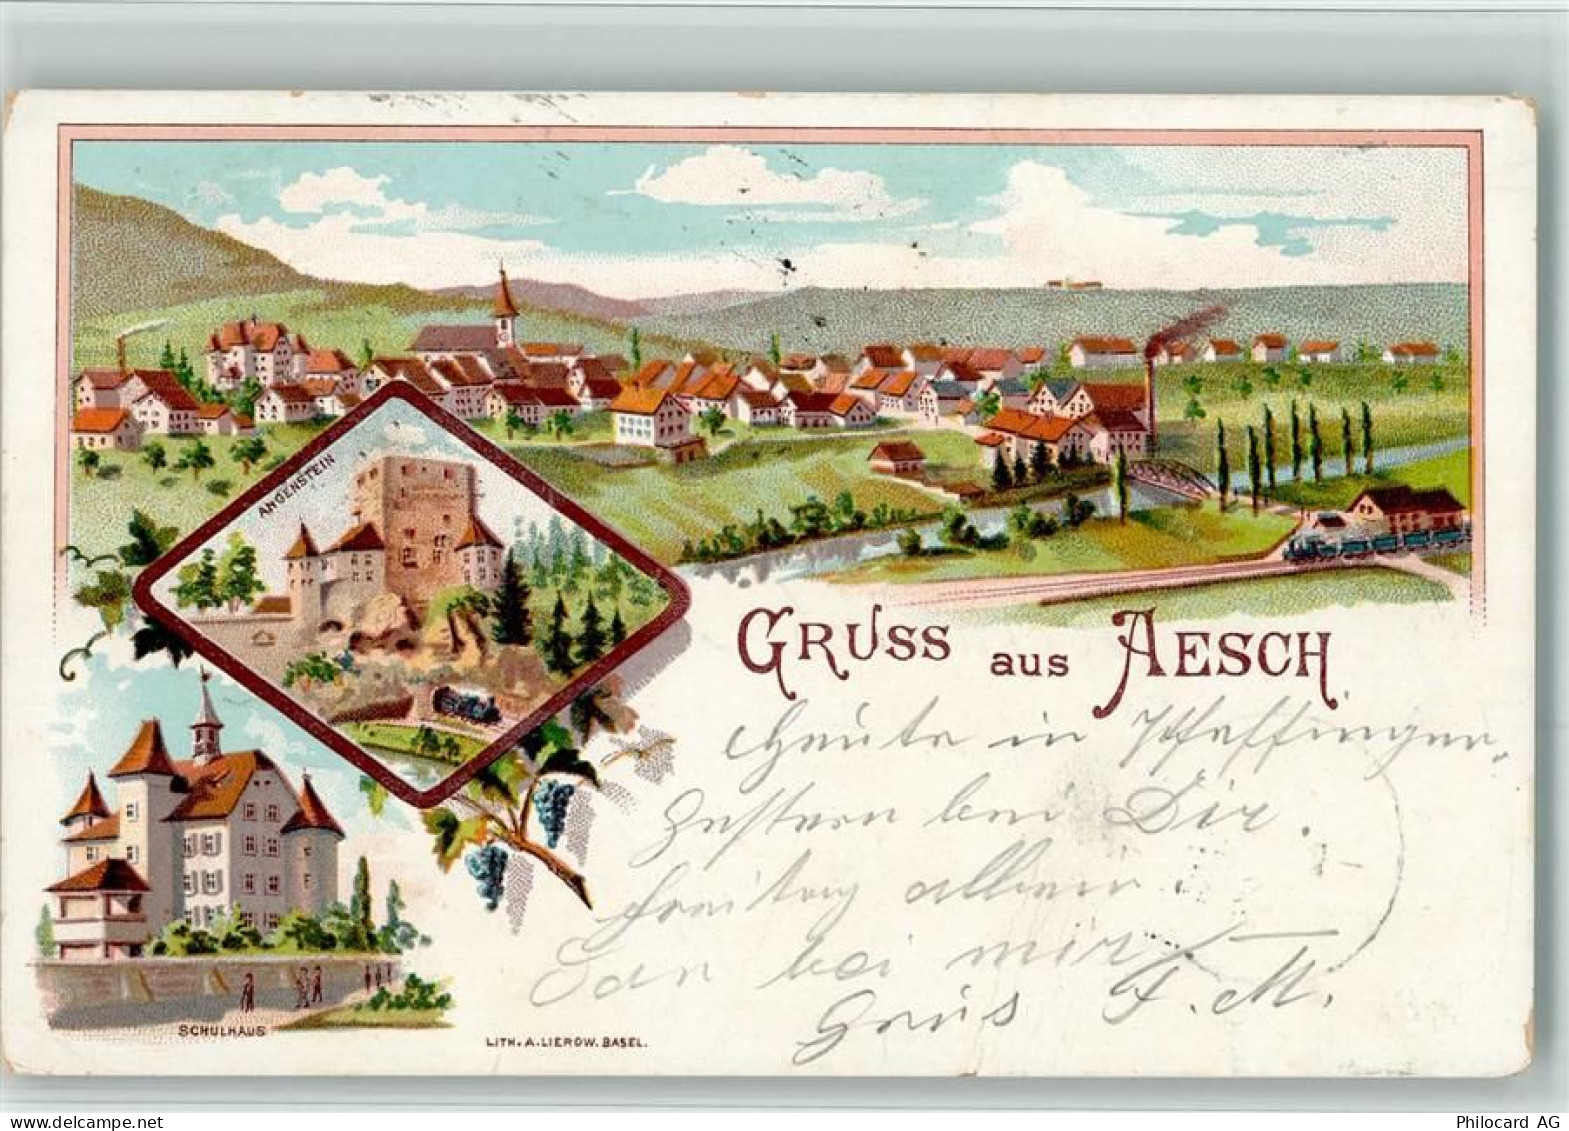 ANGENSTEIN
GRUSS aus AESCH
Heute in Pfeffingen.
Gestern bei Dir.
Freitag allein.
bei mir
Grus F. M.
SCHULHAUS
LITH. A. LIEROW. BASEL.
Philocard AG